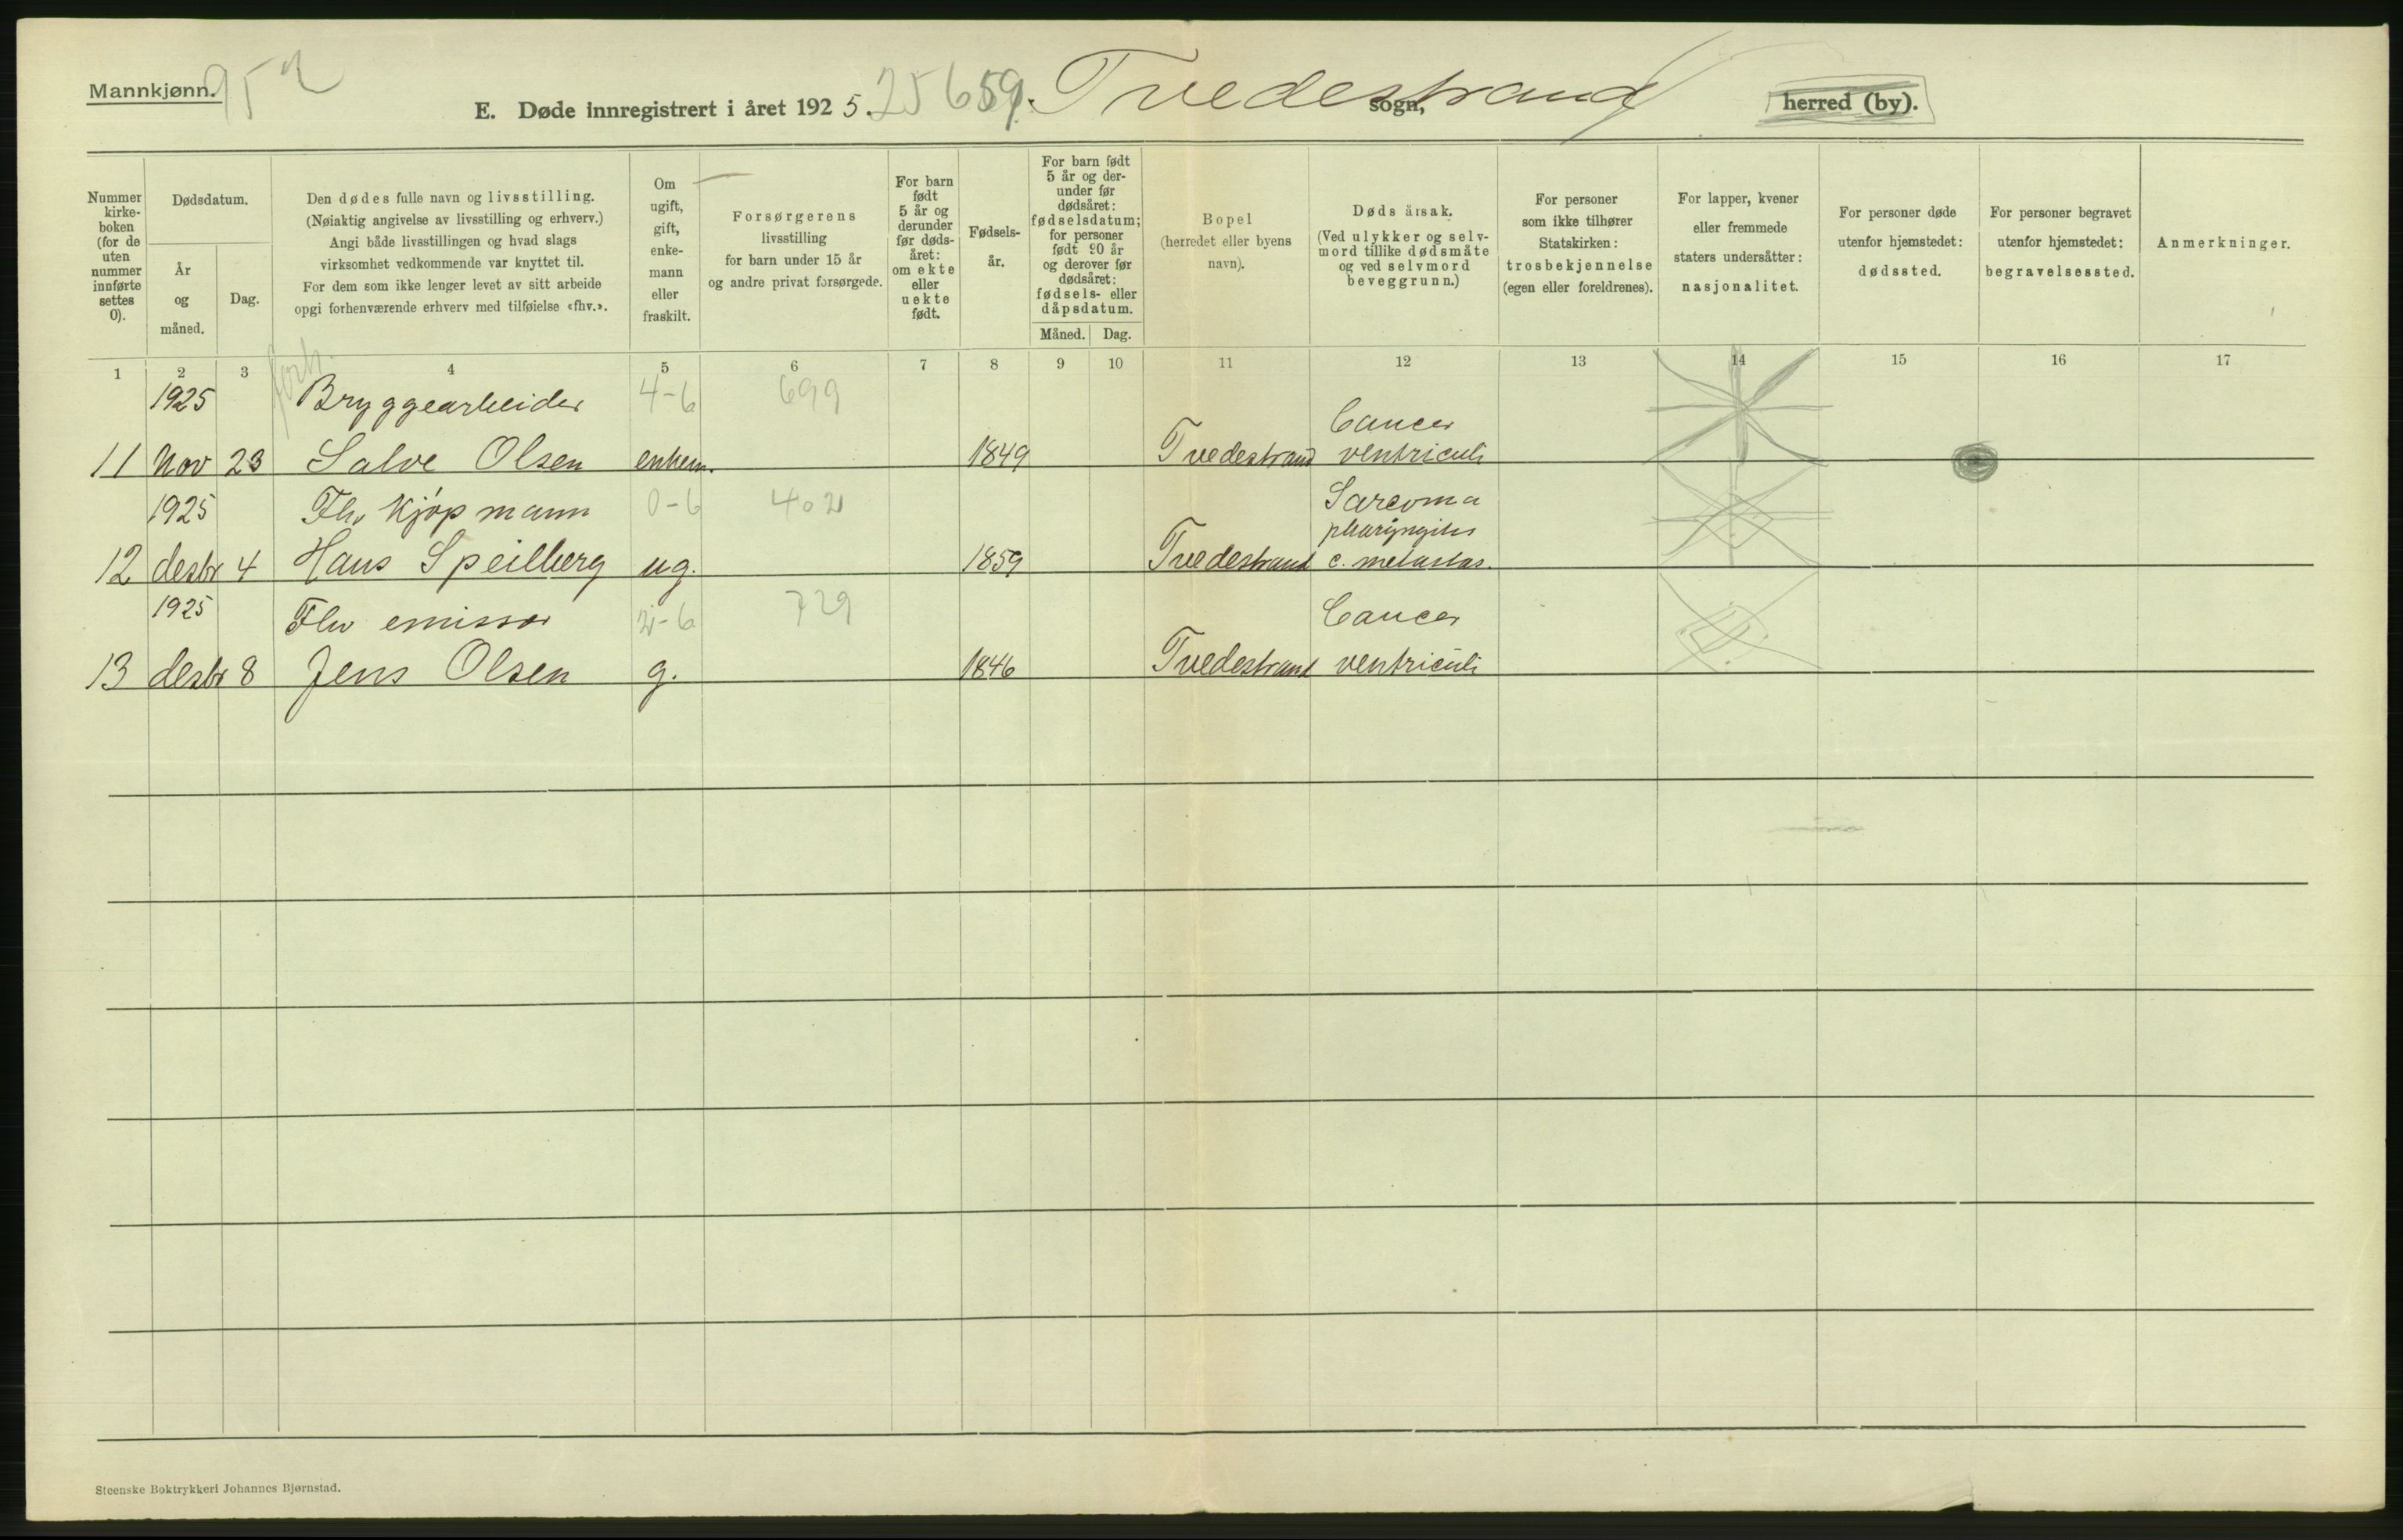 Mannkjønn.
E. Døde innregistrert i året 1925. 25659. Tvedestrand sogn, herred (by).
Nummer kirke-boken (for de uten nummer innførte settes 0).
Dødsdatum.
År og måned.
Dag.
Den dødes fulle navn og livsstilling.
(Nøiaktig angivelse av livsstilling og erhverv.)
Angi både livsstillingen og hvad slags
virksomhet vedkommende var knyttet til.
For dem som ikke lenger levet av sitt arbeide
opgi forhenværende erhverv med tilføielse «fhv.».
Om ugift, gift, enke-mann eller fraskilt.
Forsørgerens
livsstilling
for barn under 15 år
og andre privat forsørgede.
For barn født 5 år og derunder før døds-året: om ekte eller uekte født.
Fødsels-år.
For barn født 5 år og der-under før dødsåret: fødselsdatum; for personer født 90 år og derover før dødsåret: fødsels- eller dåpsdatum.
Måned.
Dag.
Bopel
(herredet eller byens
navn).
Dødsårsak.
(Ved ulykker og selv-
mord tillike dødsmåte
og ved selvmord
beveggrunn.)
For personer
som ikke tilhører
Statskirken:
trosbekjennelse
(egen eller foreldrenes).
For lapper, kvener
eller fremmede
staters undersåtter:
nasjonalitet.
For personer døde
utenfor hjemstedet:
dødssted.
For personer begravet
utenfor hjemstedet:
begravelsessted.
Anmerkninger.
1 2 3 4 5 6 7 8 9 10 11 12 13 14 15 16 17
forh.
1925 Bryggearbeider 4-6 699 Cancer
11 Nov 23 Salve Olsen enkem. 1849 Tvedestrand ventriculi
1925 Fhv Kjøpmann 0-6 402 Sarcoma
pharyngitis
12 desbr 4 Hans Speilberg ug. 1859 Tvedestrand c. metastas.
1925 Fhv emissær 2-6 729 Cancer
13 desbr 8 Jens Olsen g. 1846 Tvedestrand ventriculi
Steenske Boktrykkeri Johannes Bjørnstad.